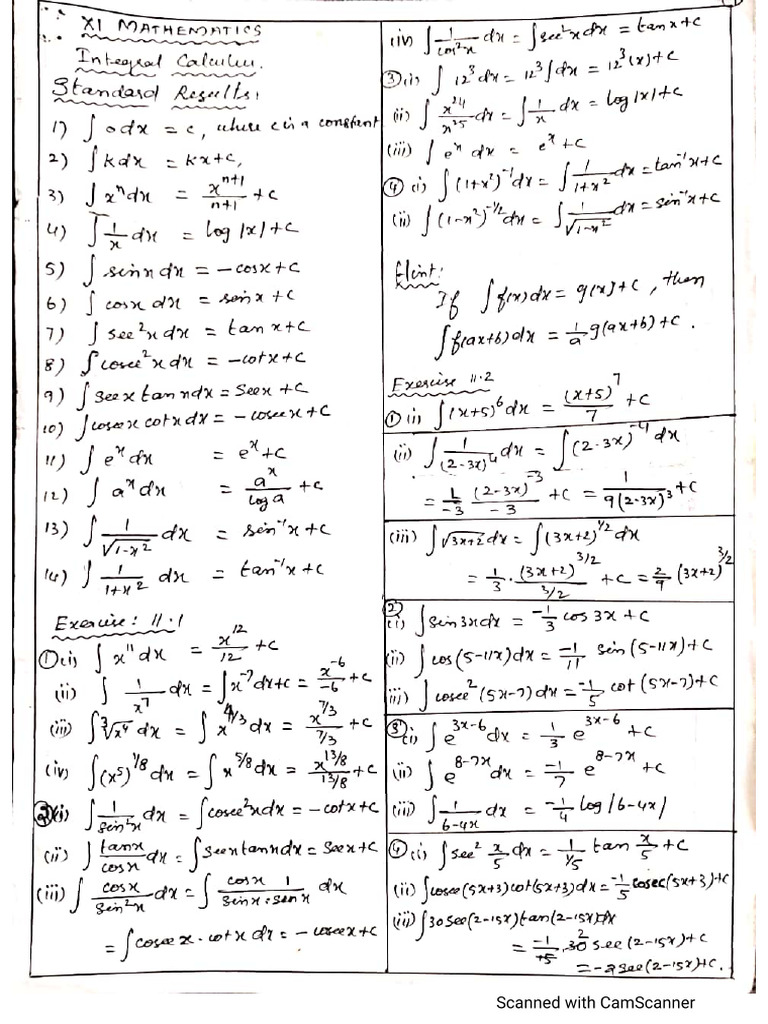 XI MATHEMATICS
Integral Calculus.
Standard Results:
1) ∫ 0 dx = c, where c is a constant
2) ∫ k dx = kx + c,
3) ∫ xⁿ dx = xⁿ⁺¹/(n+1) + c
4) ∫ 1/x dx = log |x| + c
5) ∫ sin x dx = -cos x + c
6) ∫ cos x dx = sin x + c
7) ∫ sec²x dx = tan x + c
8) ∫ cosec²x dx = -cot x + c
9) ∫ sec x tan x dx = sec x + c
10) ∫ cosec x cot x dx = -cosec x + c
11) ∫ eˣ dx = eˣ + c
12) ∫ aˣ dx = aˣ/log a + c
13) ∫ 1/√(1-x²) dx = sin⁻¹x + c
14) ∫ 1/(1+x²) dx = tan⁻¹x + c
Exercise: 11.1
① (i) ∫ x¹¹ dx = x¹²/12 + c
(ii) ∫ 1/x⁷ dx = ∫ x⁻⁷ dx + c = x⁻⁶/-6 + c
(iii) ∫ ∛x⁴ dx = ∫ x^(4/3) dx = x^(7/3)/(7/3) + c
(iv) ∫ (x⁵)^(1/8) dx = ∫ x^(5/8) dx = x^(13/8)/(13/8) + c
② (i) ∫ 1/sin²x dx = ∫ cosec²x dx = -cot x + c
(ii) ∫ tan x/cos x dx = ∫ sec x tan x dx = sec x + c
(iii) ∫ cos x/sin²x dx = ∫ cos x/sin x · 1/sin x dx
= ∫ cosec x · cot x dx = -cosec x + c
(iv) ∫ 1/cos²x dx = ∫ sec²x dx = tan x + c
③ (i) ∫ 12³ dx = 12³ ∫ dx = 12³(x) + c
(ii) ∫ x²⁴/x²⁵ dx = ∫ 1/x dx = log |x| + c
(iii) ∫ eˣ dx = eˣ + c
④ (i) ∫ (1+x²)⁻¹ dx = ∫ 1/(1+x²) dx = tan⁻¹x + c
(ii) ∫ (1-x²)^(-1/2) dx = ∫ 1/√(1-x²) dx = sin⁻¹x + c
Hint:
If ∫ f(x) dx = g(x) + c, then
∫ f(ax+b) dx = 1/a g(ax+b) + c.
Exercise 11.2
① (i) ∫ (x+5)⁶ dx = (x+5)⁷/7 + c
(ii) ∫ 1/(2-3x)⁴ dx = ∫ (2-3x)⁻⁴ dx
= 1/-3 (2-3x)⁻³/-3 + c = 1/9(2-3x)³ + c
(iii) ∫ √(3x+2) dx = ∫ (3x+2)^(1/2) dx
= 1/3 · (3x+2)^(3/2)/(3/2) + c = 2/9 (3x+2)^(3/2)
② (i) ∫ sin 3x dx = -1/3 cos 3x + c
(ii) ∫ cos(5-11x) dx = -1/11 sin(5-11x) + c
(iii) ∫ cosec²(5x-7) dx = -1/5 cot(5x-7) + c
③ (i) ∫ e^(3x-6) dx = 1/3 e^(3x-6) + c
(ii) ∫ e^(8-7x) dx = -1/7 e^(8-7x) + c
(iii) ∫ 1/(6-4x) dx = -1/4 log |6-4x|
④ (i) ∫ sec² x/5 dx = 1/(1/5) tan x/5 + c
(ii) ∫ cosec(5x+3) cot(5x+3) dx = -1/5 cosec(5x+3) + c
(iii) ∫ 30 sec(2-15x) tan(2-15x) dx
= -1/15 · 30 2 sec(2-15x) + c
= -2 sec(2-15x) + c.
Scanned with CamScanner